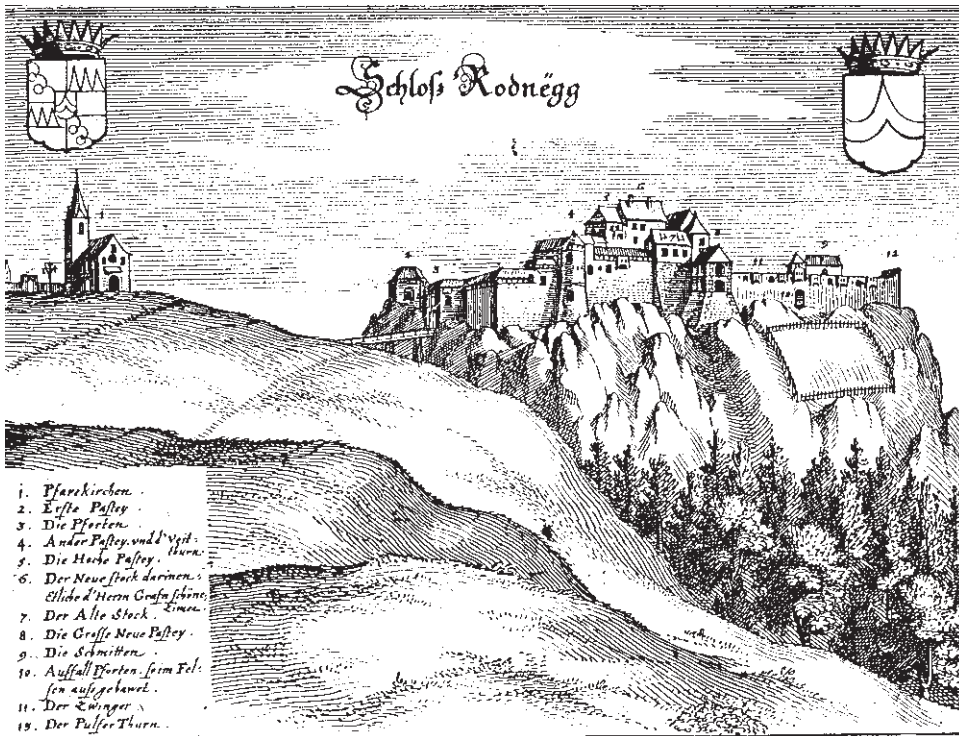 Schloß Rodnëgg
1. Pfarrkirchen.
2. Erste Pastey.
3. Die Pforten.
4. Ander Pastey. vnd d' Veit-
thurn.
5. Die Hoche Pastey.
6. Der Neue stock darinen
Etliche d' Herrn Grafn schöne
Zimer.
7. Der Alte Stock.
8. Die Grosse Neue Pastey.
9. Die Schmitten.
10. Außfall Pforten. so im Fel-
sen aussgehawet.
11. Der Zwinger.
12. Der Pulfer Thurn.